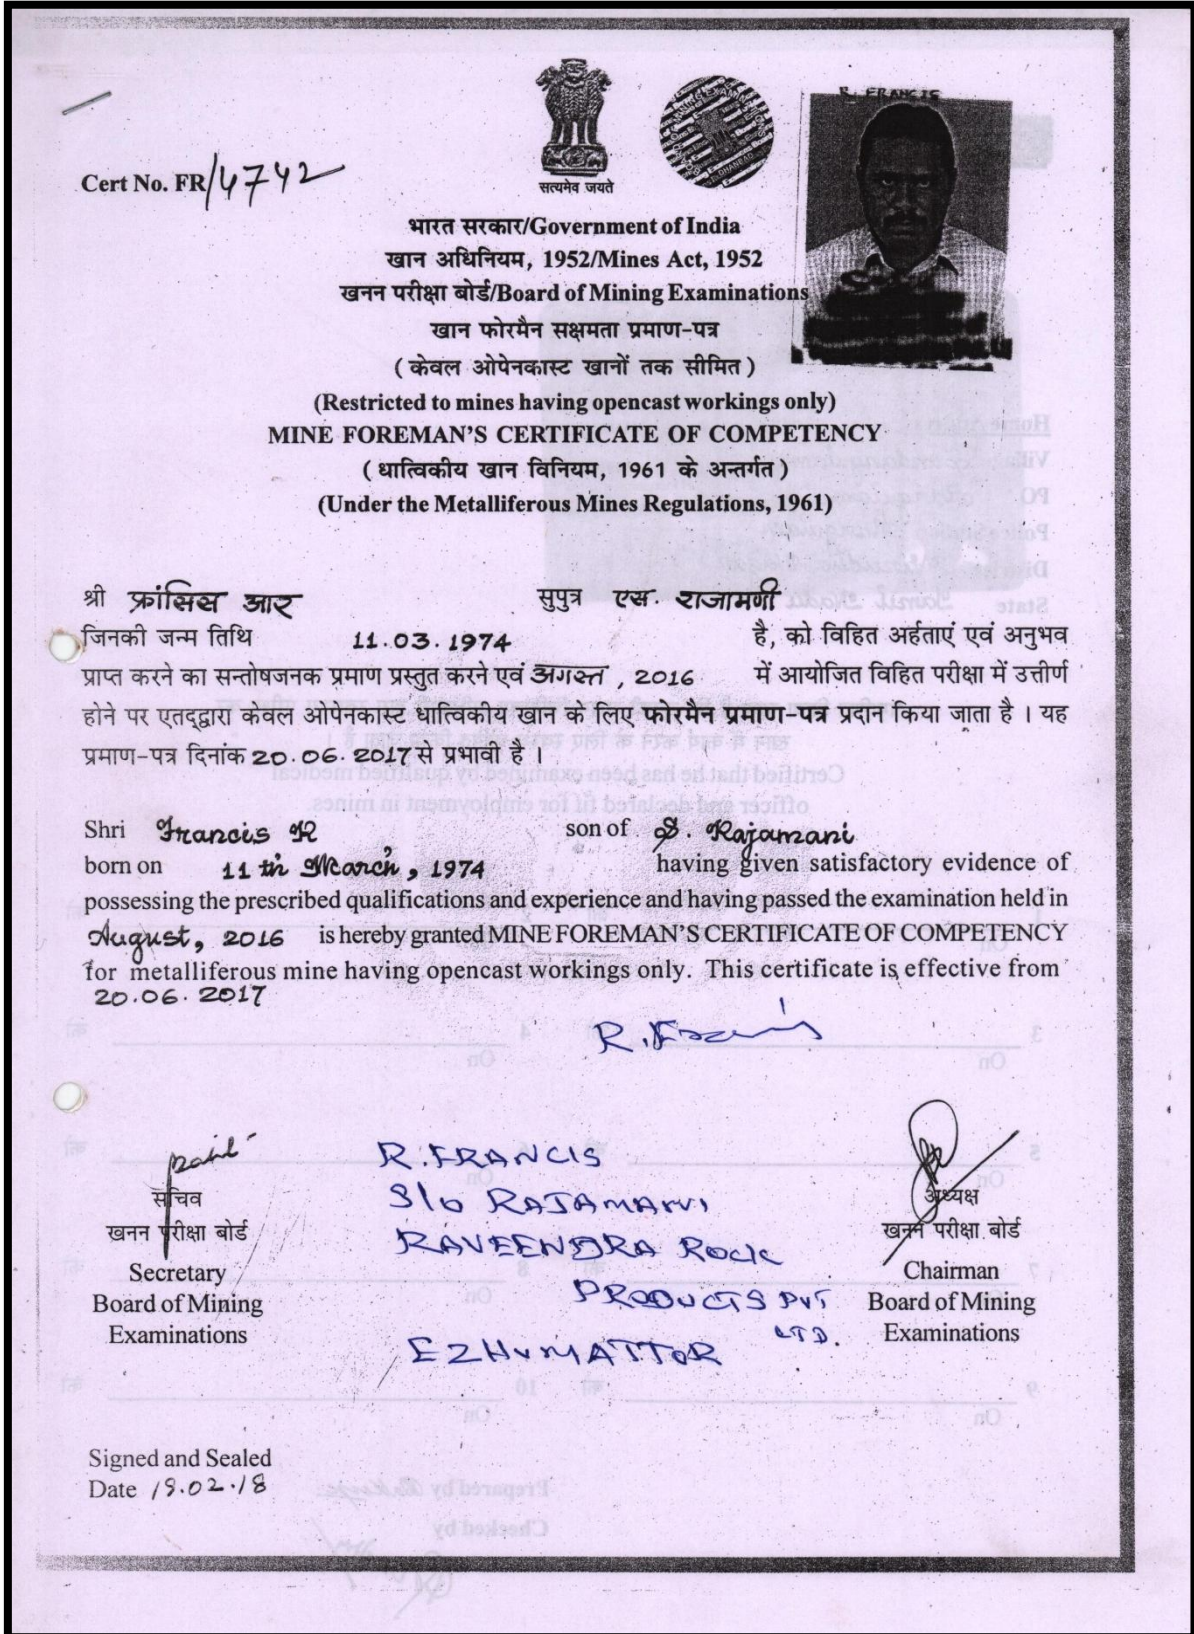 R. FRANCIS
Cert No. FR/4742
सत्यमेव जयते
भारत सरकार/Government of India
खान अधिनियम, 1952/Mines Act, 1952
खनन परीक्षा बोर्ड/Board of Mining Examinations
खान फोरमैन सक्षमता प्रमाण-पत्र
( केवल ओपेनकास्ट खानों तक सीमित )
(Restricted to mines having opencast workings only)
MINE FOREMAN'S CERTIFICATE OF COMPETENCY
( धात्विकीय खान विनियम, 1961 के अन्तर्गत )
(Under the Metalliferous Mines Regulations, 1961)
श्री फ्रांसिस आर सुपुत्र एस. राजामणी
जिनकी जन्म तिथि 11.03.1974 है, को विहित अर्हताएं एवं अनुभव
प्राप्त करने का सन्तोषजनक प्रमाण प्रस्तुत करने एवं अगस्त, 2016 में आयोजित विहित परीक्षा में उत्तीर्ण
होने पर एतद्द्वारा केवल ओपेनकास्ट धात्विकीय खान के लिए फोरमैन प्रमाण-पत्र प्रदान किया जाता है । यह
प्रमाण-पत्र दिनांक 20.06.2017 से प्रभावी है ।
Shri Francis R son of S. Rajamani
born on 11 th March, 1974 having given satisfactory evidence of
possessing the prescribed qualifications and experience and having passed the examination held in
August, 2016 is hereby granted MINE FOREMAN'S CERTIFICATE OF COMPETENCY
for metalliferous mine having opencast workings only. This certificate is effective from
20.06.2017
R. Francis
R. FRANCIS
S/o RAJAMANI
RAVEENDRA ROCK
PRODUCTS PVT
LTD.
EZHUMATTOR
सचिव
खनन परीक्षा बोर्ड
Secretary
Board of Mining
Examinations
अध्यक्ष
खनन परीक्षा बोर्ड
Chairman
Board of Mining
Examinations
Signed and Sealed
Date 19.02.18